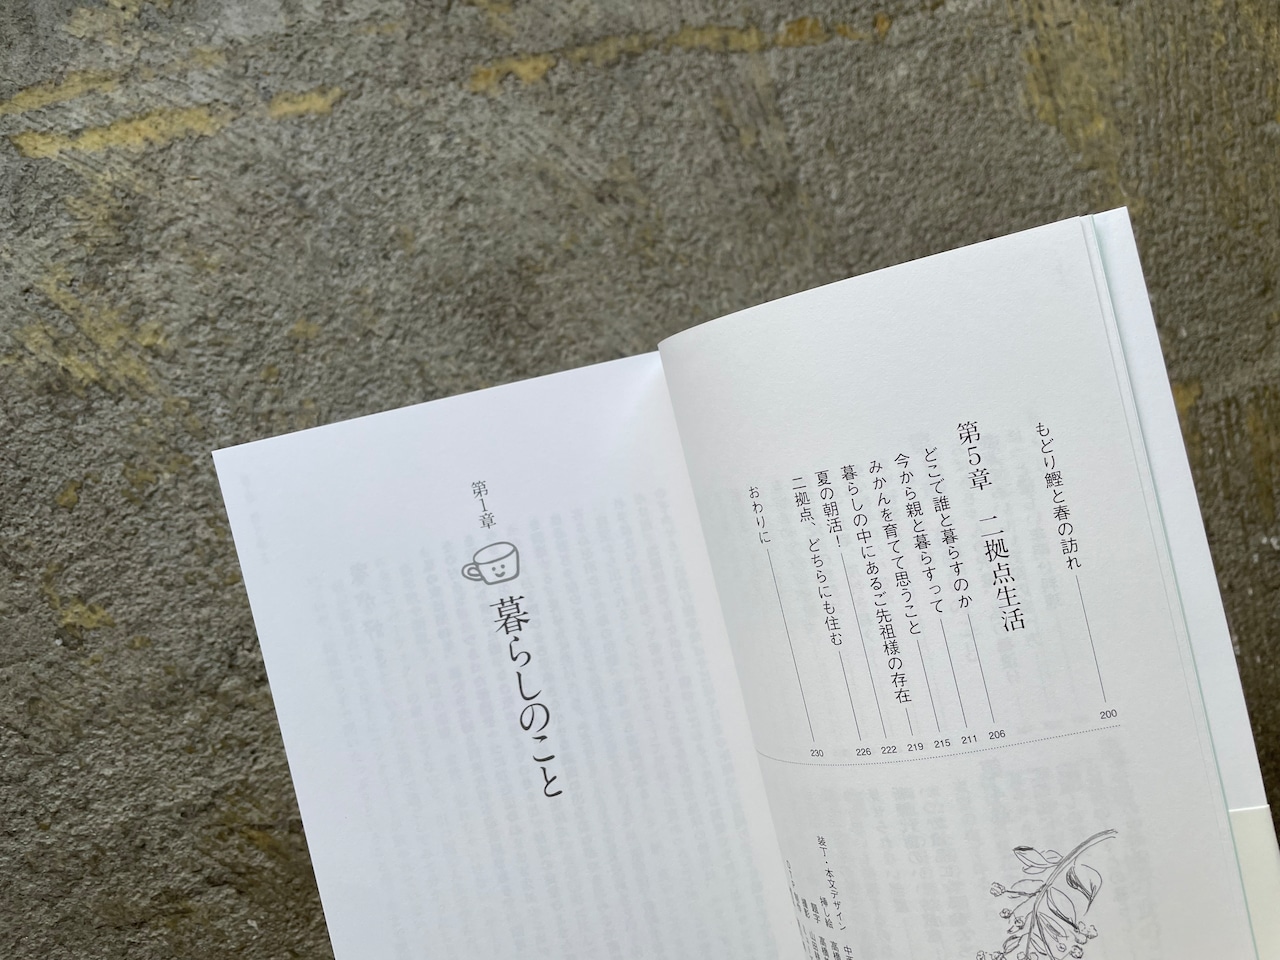 もどり鰹と春の訪れ 200
第5章 二拠点生活
どこで誰と暮らすのか 206
今から親と暮らすって 211
みかんを育てて思うこと 215
暮らしの中にあるご先祖様の存在 219
夏の朝活! 222
二拠点、どちらにも住む 226
おわりに 230
装丁・本文デザイン
挿し絵
題字
撮影
第1章
暮らしのこと